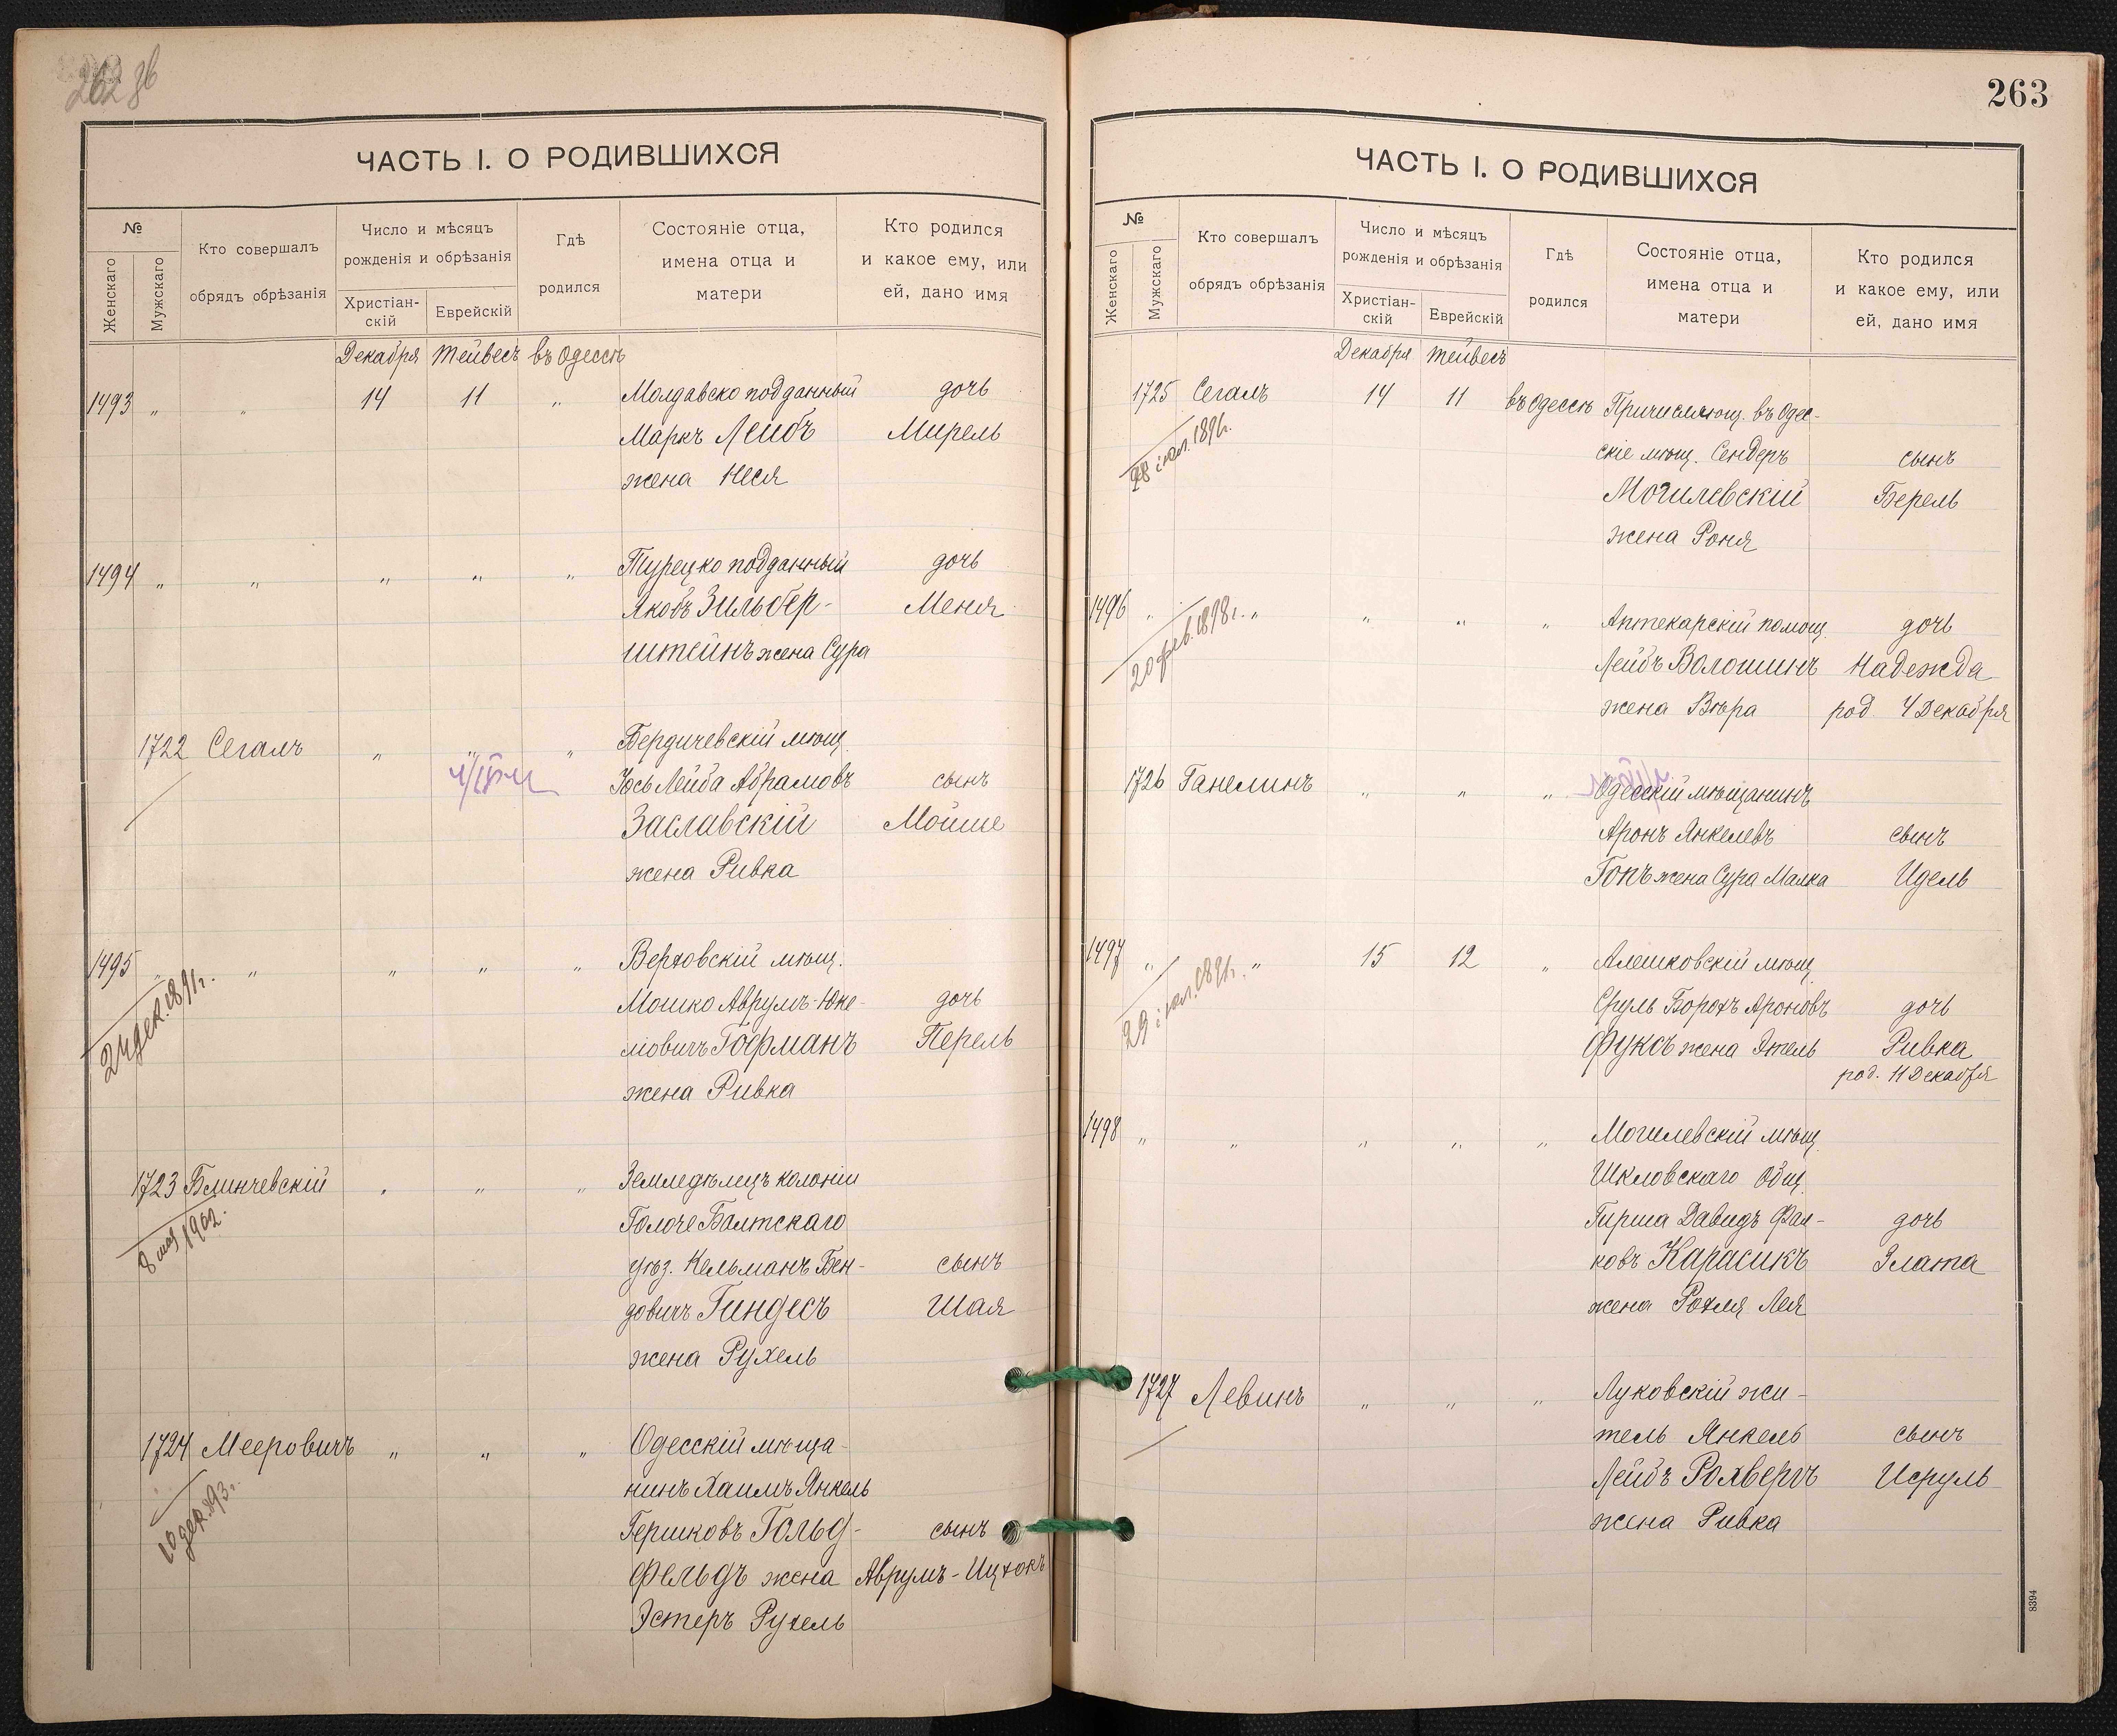 262 зв
ЧАСТЬ I. О РОДИВШИХСЯ
№
Женскаго
Мужскаго
Кто совершалъ
обрядъ обрѣзанія
Число и мѣсяцъ
рожденія и обрѣзанія
Христіан-
скій
Еврейскій
Гдѣ
родился
Состояніе отца,
имена отца и
матери
Кто родился
и какое ему, или
ей, дано имя
Декабря Тейвесъ въ Одессѣ
1493 " " 14 11 " Молдавско подданный дочь
Маркъ Лейбъ Мирель
жена Неся
1494 " " " " " Турецко подданный дочь
Якобъ Зильбер- Меня
штейнъ жена Сура
1722 Сегалъ " " " Бердичевскій мѣщ.
Юсь Лейба Абрамовъ сынъ
Заславскій Мойше
жена Ривка
1495 " " " " " Верховскій мѣщ.
24 дек. 1891 г.
Мошко Аврумъ-Юке- дочь
ліовичъ Гофманъ Перель
жена Ривка
1723 Блинчевскій " " " Земледѣлецъ колоніи
8 мая 1902.
Голоче Балтскаго
уѣз. Кельманъ Бен- сынъ
довичъ Гиндесъ Шая
жена Рухель
1724 Мееровичъ " " " Одесскій мѣща-
10 дек. 893 г.
нинъ Хаимъ Янкель
Гершковъ Гольд- сынъ
фельдъ жена Аврумъ-Ицхокъ
Эстеръ Рухель
263
ЧАСТЬ I. О РОДИВШИХСЯ
№
Женскаго
Мужскаго
Кто совершалъ
обрядъ обрѣзанія
Число и мѣсяцъ
рожденія и обрѣзанія
Христіан-
скій
Еврейскій
Гдѣ
родился
Состояніе отца,
имена отца и
матери
Кто родился
и какое ему, или
ей, дано имя
Декабря Тейвесъ
1725 Сегалъ 14 11 въ Одессѣ Причисляющ. въ Одес-
1891 г.
скіе мѣщ. Сендеръ сынъ
Могилевскій Берель
жена Роня
1496 " " " " " Аптекарскій помощ. дочь
20 фев. 1898 г.
Лейбъ Волошинъ Надежда
жена Вѣра род 4 Декабря
1726 Ганелинъ " " " Одесскій мѣщанинъ
Аронъ Янкелевъ сынъ
Гокъ жена Сура Малка Идель
1497 " " 15 12 " Алешковскій мѣщ.
1891 г.
Сруль Борохъ Ароновъ дочь
Фуксъ жена Этель Ривка
род. 11 Декабря
1498 " " " " " Могилевскій мѣщ.
Шкловскаго Общ.
Гирша Давидъ Фай- дочь
ковъ Карасикъ Злата
жена Рохля Лея
1727 Левинъ " " " Луковскій жи-
тель Янкель сынъ
Лейбъ Рохвергъ Исруль
жена Ривка
8394